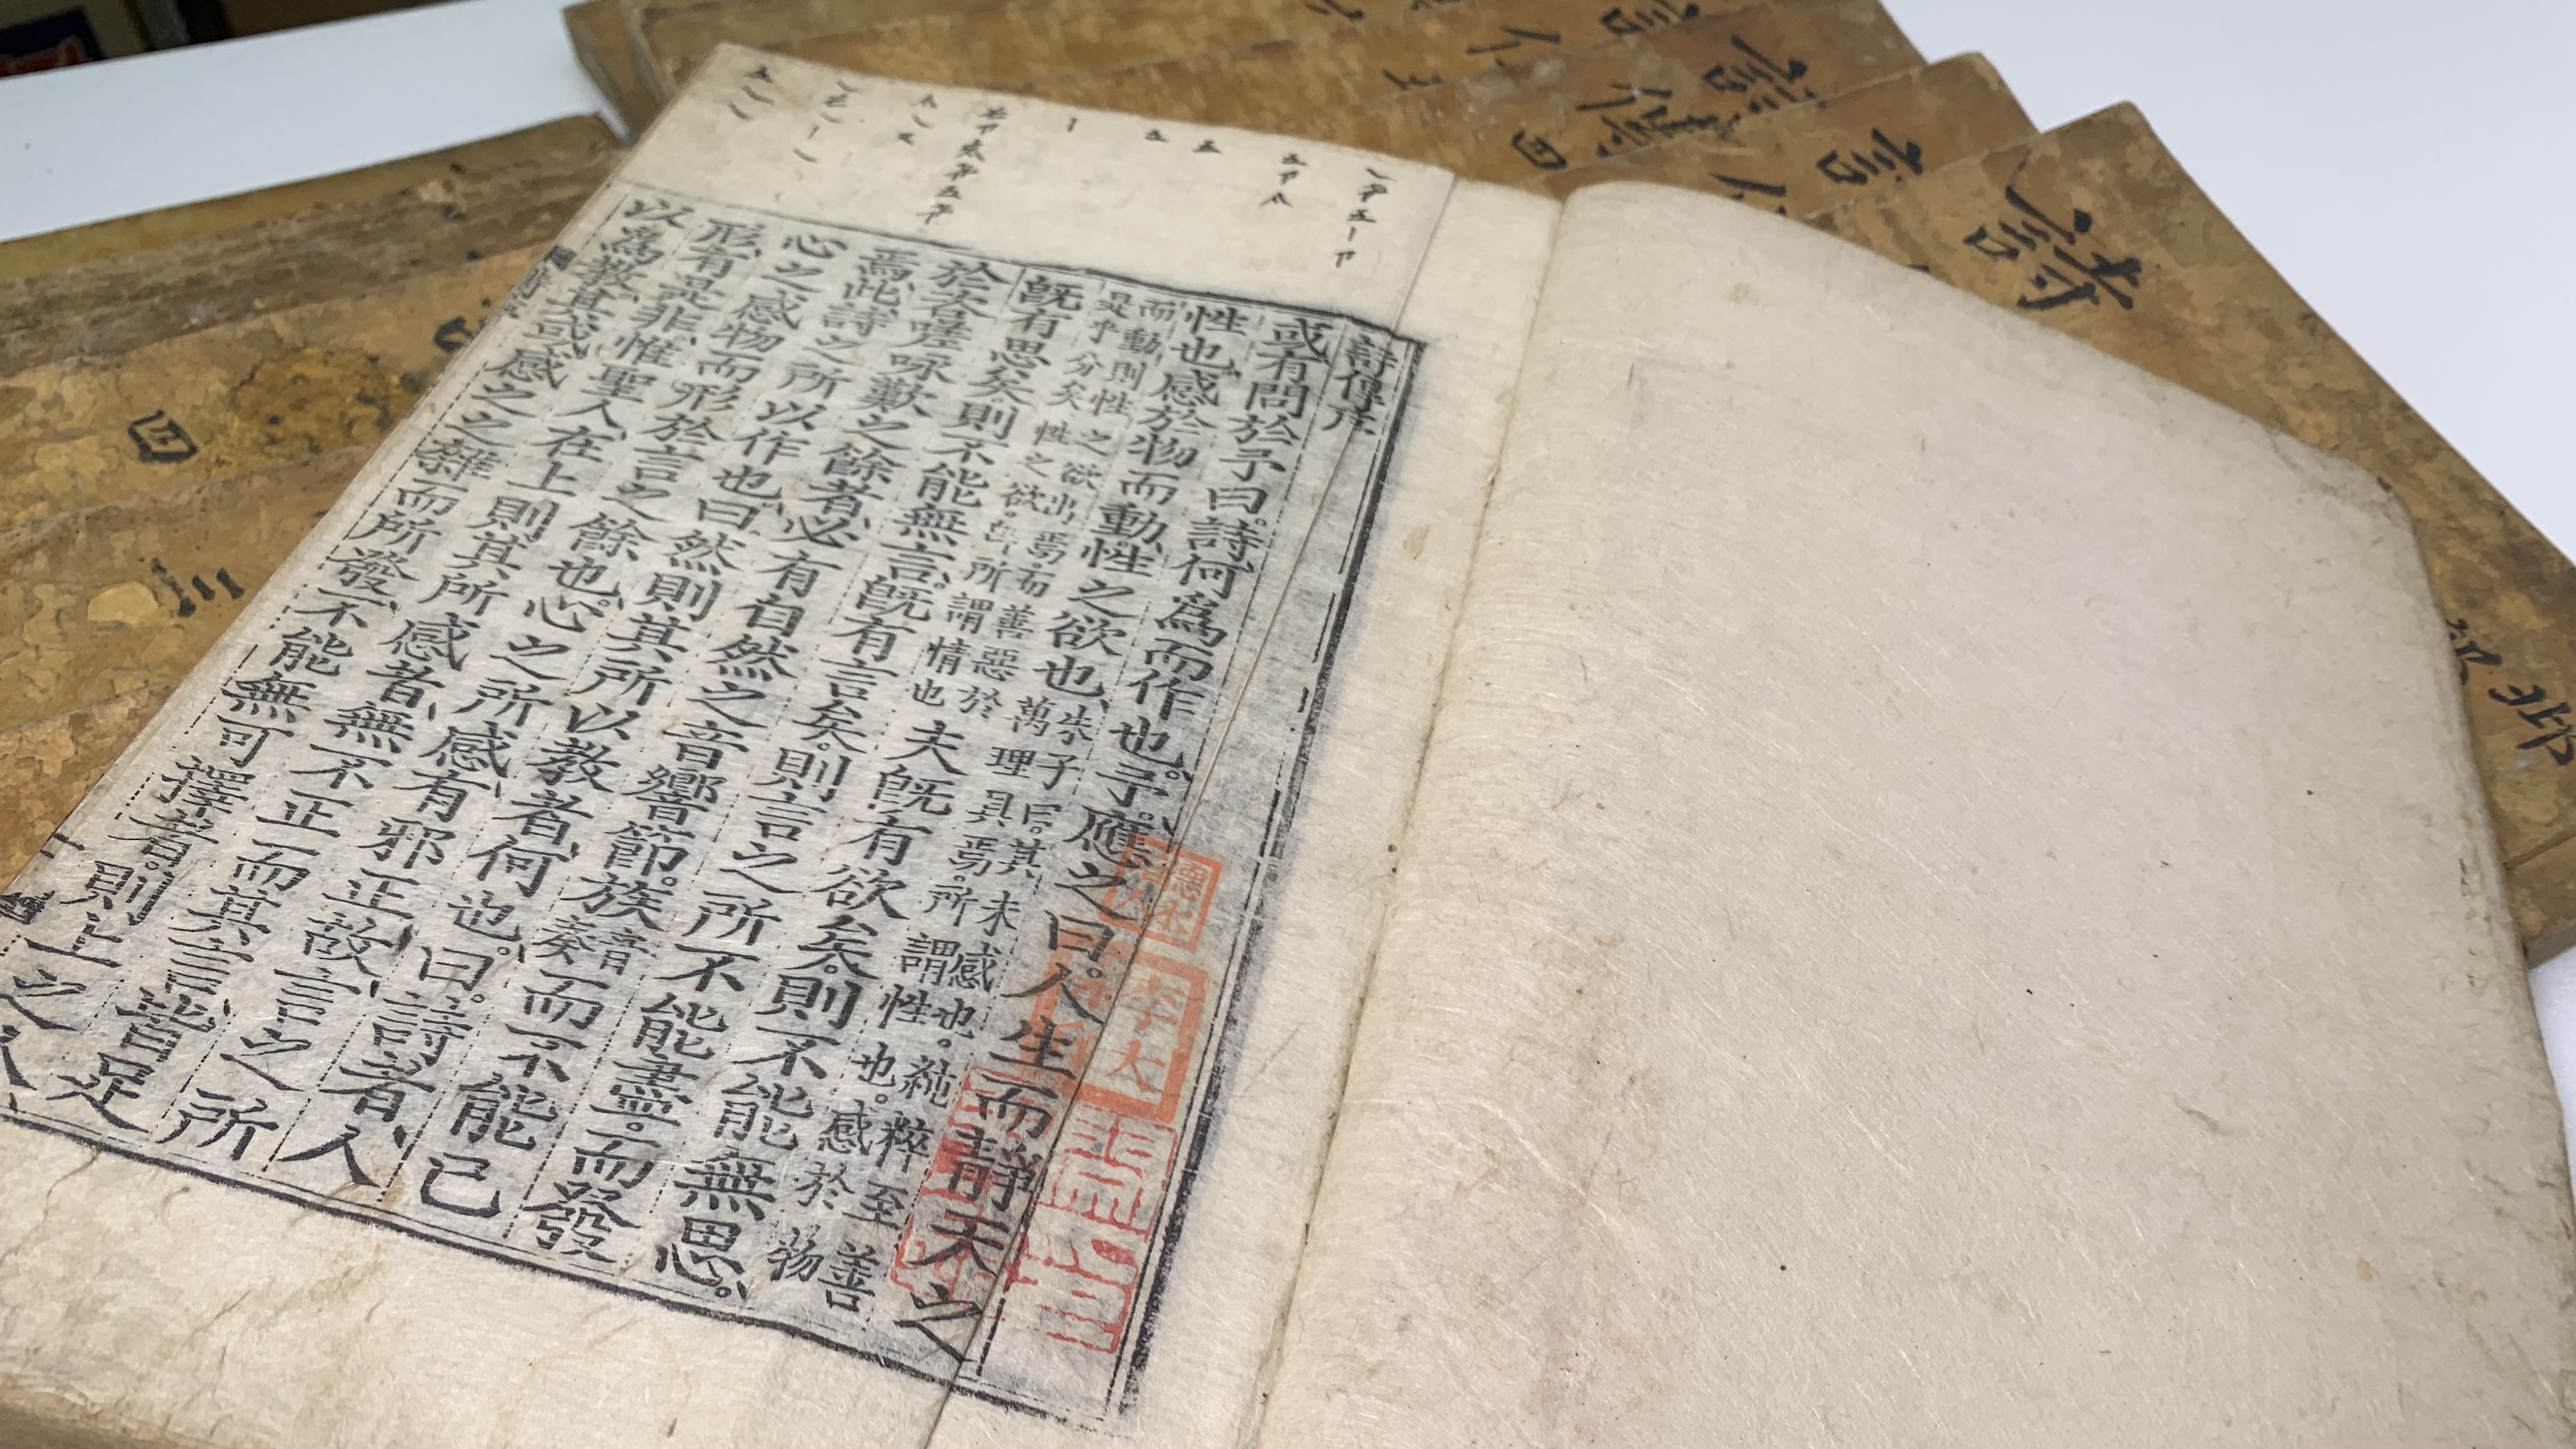 詩傳序
或有問於予曰。詩何爲而作也。予應之曰。人生而靜天之
性也感於物而動、性之欲也、朱子曰。其未感也。純粹至善
萬理具焉。所謂性也。感於物
而動則性之欲出焉。而善惡於
是乎分矣性之欲。卽所謂情也夫旣有欲矣。則不能無思。
旣有思矣則不能無言。旣有言矣。則言之所不能盡。而發
於咨嗟咏歎之餘者、必有自然之音響節族音奏而不能已
焉、此詩之所以作也。曰然則其所以敎者何也。曰。詩者、人
心之感物而形於言之餘也。心之所感有邪正故、言之所
形、有是非、惟聖人在上則其所感者、無不正而其言皆足
以爲敎。其或感之之雜而所發不能無可擇者。則上之人
李大
詩
四
四
三